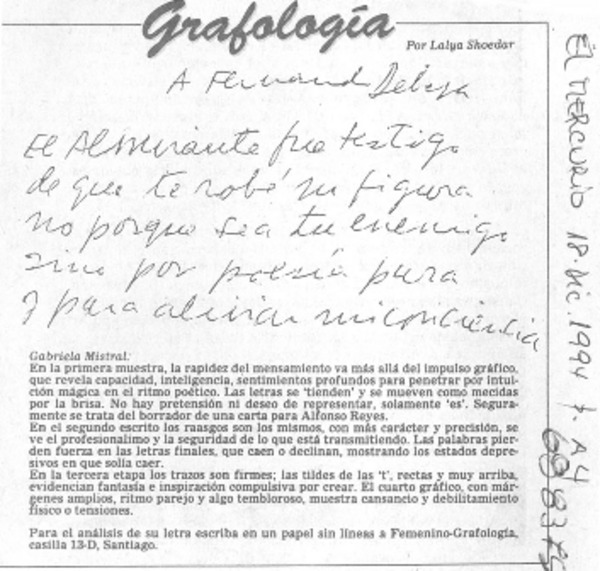 Grafología
Por Lalya Shoedar
A Fernando
El Almirante fue testigo
de que te robé su figura
no porque sea tu enemigo
sino por poesía pura
y para aliviar mi conciencia
Gabriela Mistral:
En la primera muestra, la rapidez del mensamiento va más allá del impulso gráfico,
que revela capacidad, inteligencia, sentimientos profundos para penetrar por intui-
ción mágica en el ritmo poético. Las letras se 'tienden' y se mueven como mecidas
por la brisa. No hay pretensión ni deseo de representar, solamente 'es'. Segura-
mente se trata del borrador de una carta para Alfonso Reyes.
En el segundo escrito los raasgos son los mismos, con más carácter y precisión, se
ve el profesionalimo y la seguridad de lo que está transmitiendo. Las palabras pier-
den fuerza en las letras finales, que caen o declinan, mostrando los estados depre-
sivos en que solía caer.
En la tercera etapa los trazos son firmes; las tildes de las 't', rectas y muy arriba,
evidencian fantasía e inspiración compulsiva por crear. El cuarto gráfico, con már-
genes amplios, ritmo parejo y algo tembloroso, muestra cansancio y debilitamiento
físico o tensiones.
Para el análisis de su letra escriba en un papel sin líneas a Femenino-Grafología,
casilla 13-D, Santiago.
El MERCURIO 18. dic. 1994 p. A4